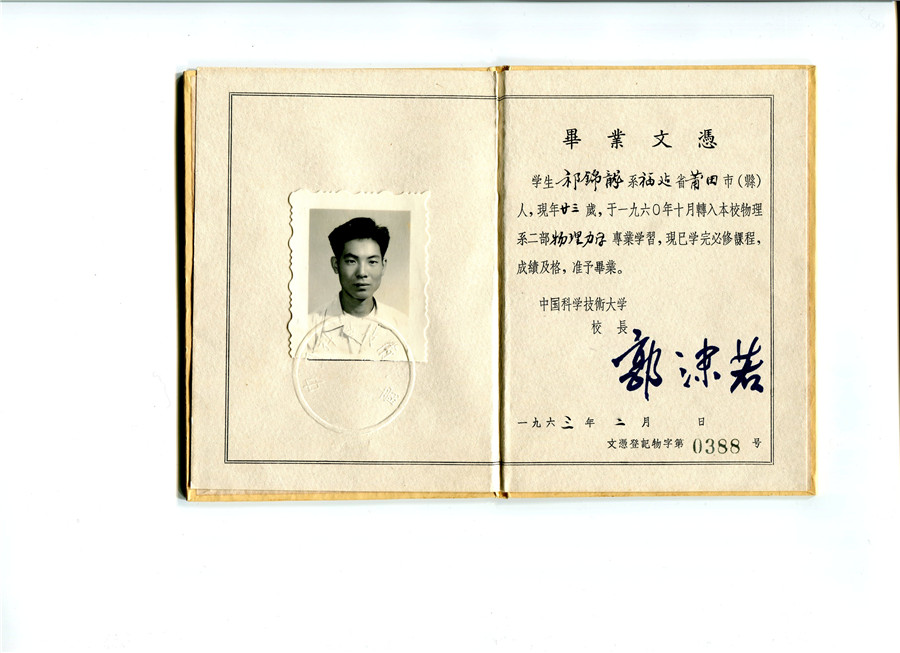 畢業文憑
学生祁錦龍系福建省莆田市(縣)
人,現年廿三歲,于一九六〇年十月轉入本校物理
系二部物理力学專業学習,現已学完必修課程,
成績及格,准予畢業。
中国科学技術大学
校長
郭沫若
一九六三年二月 日
文憑登記物字第0388号